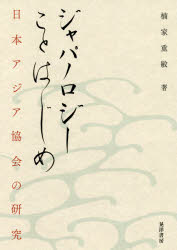 ジャパノロジー
ことはじめ
日本アジア協会の研究
楠家重敏 著
晃洋書房